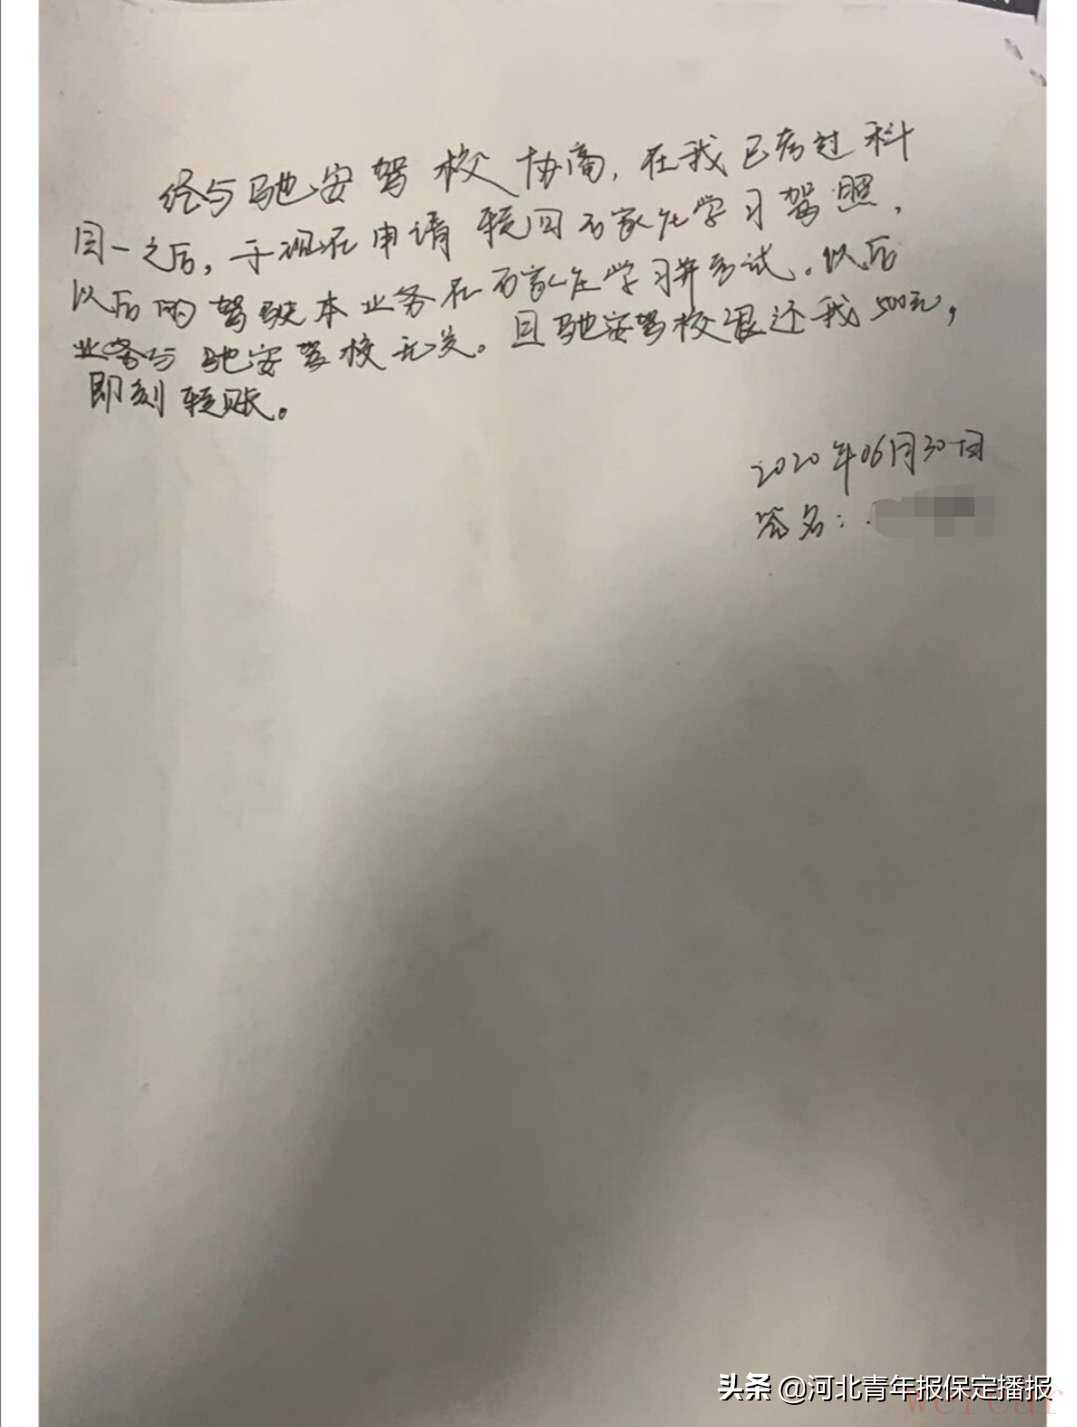 经与驰安驾校协商，在我已考过科
目一之后，于现在申请转回石家庄学习驾照，
以后的驾驶本业务在石家庄学习并考试。以后
业务与驰安驾校无关。且驰安驾校退还我500元，
即刻转账。
2020年06月30日
签名：
头条 @河北青年报保定播报